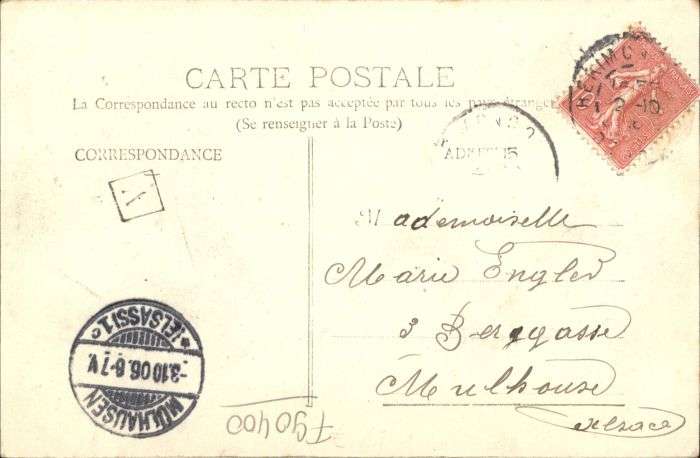 CARTE POSTALE
La Correspondance au recto n'est pas acceptée par tous les pays étrangers
(Se renseigner à la Poste)
CORRESPONDANCE
Mademoiselle
Marie Engler
3 Berggasse
Mulhouse
Alsace
MÜLHAUSEN
-3.10.06.6-7.V.
*(ELSASS)1c
F90400